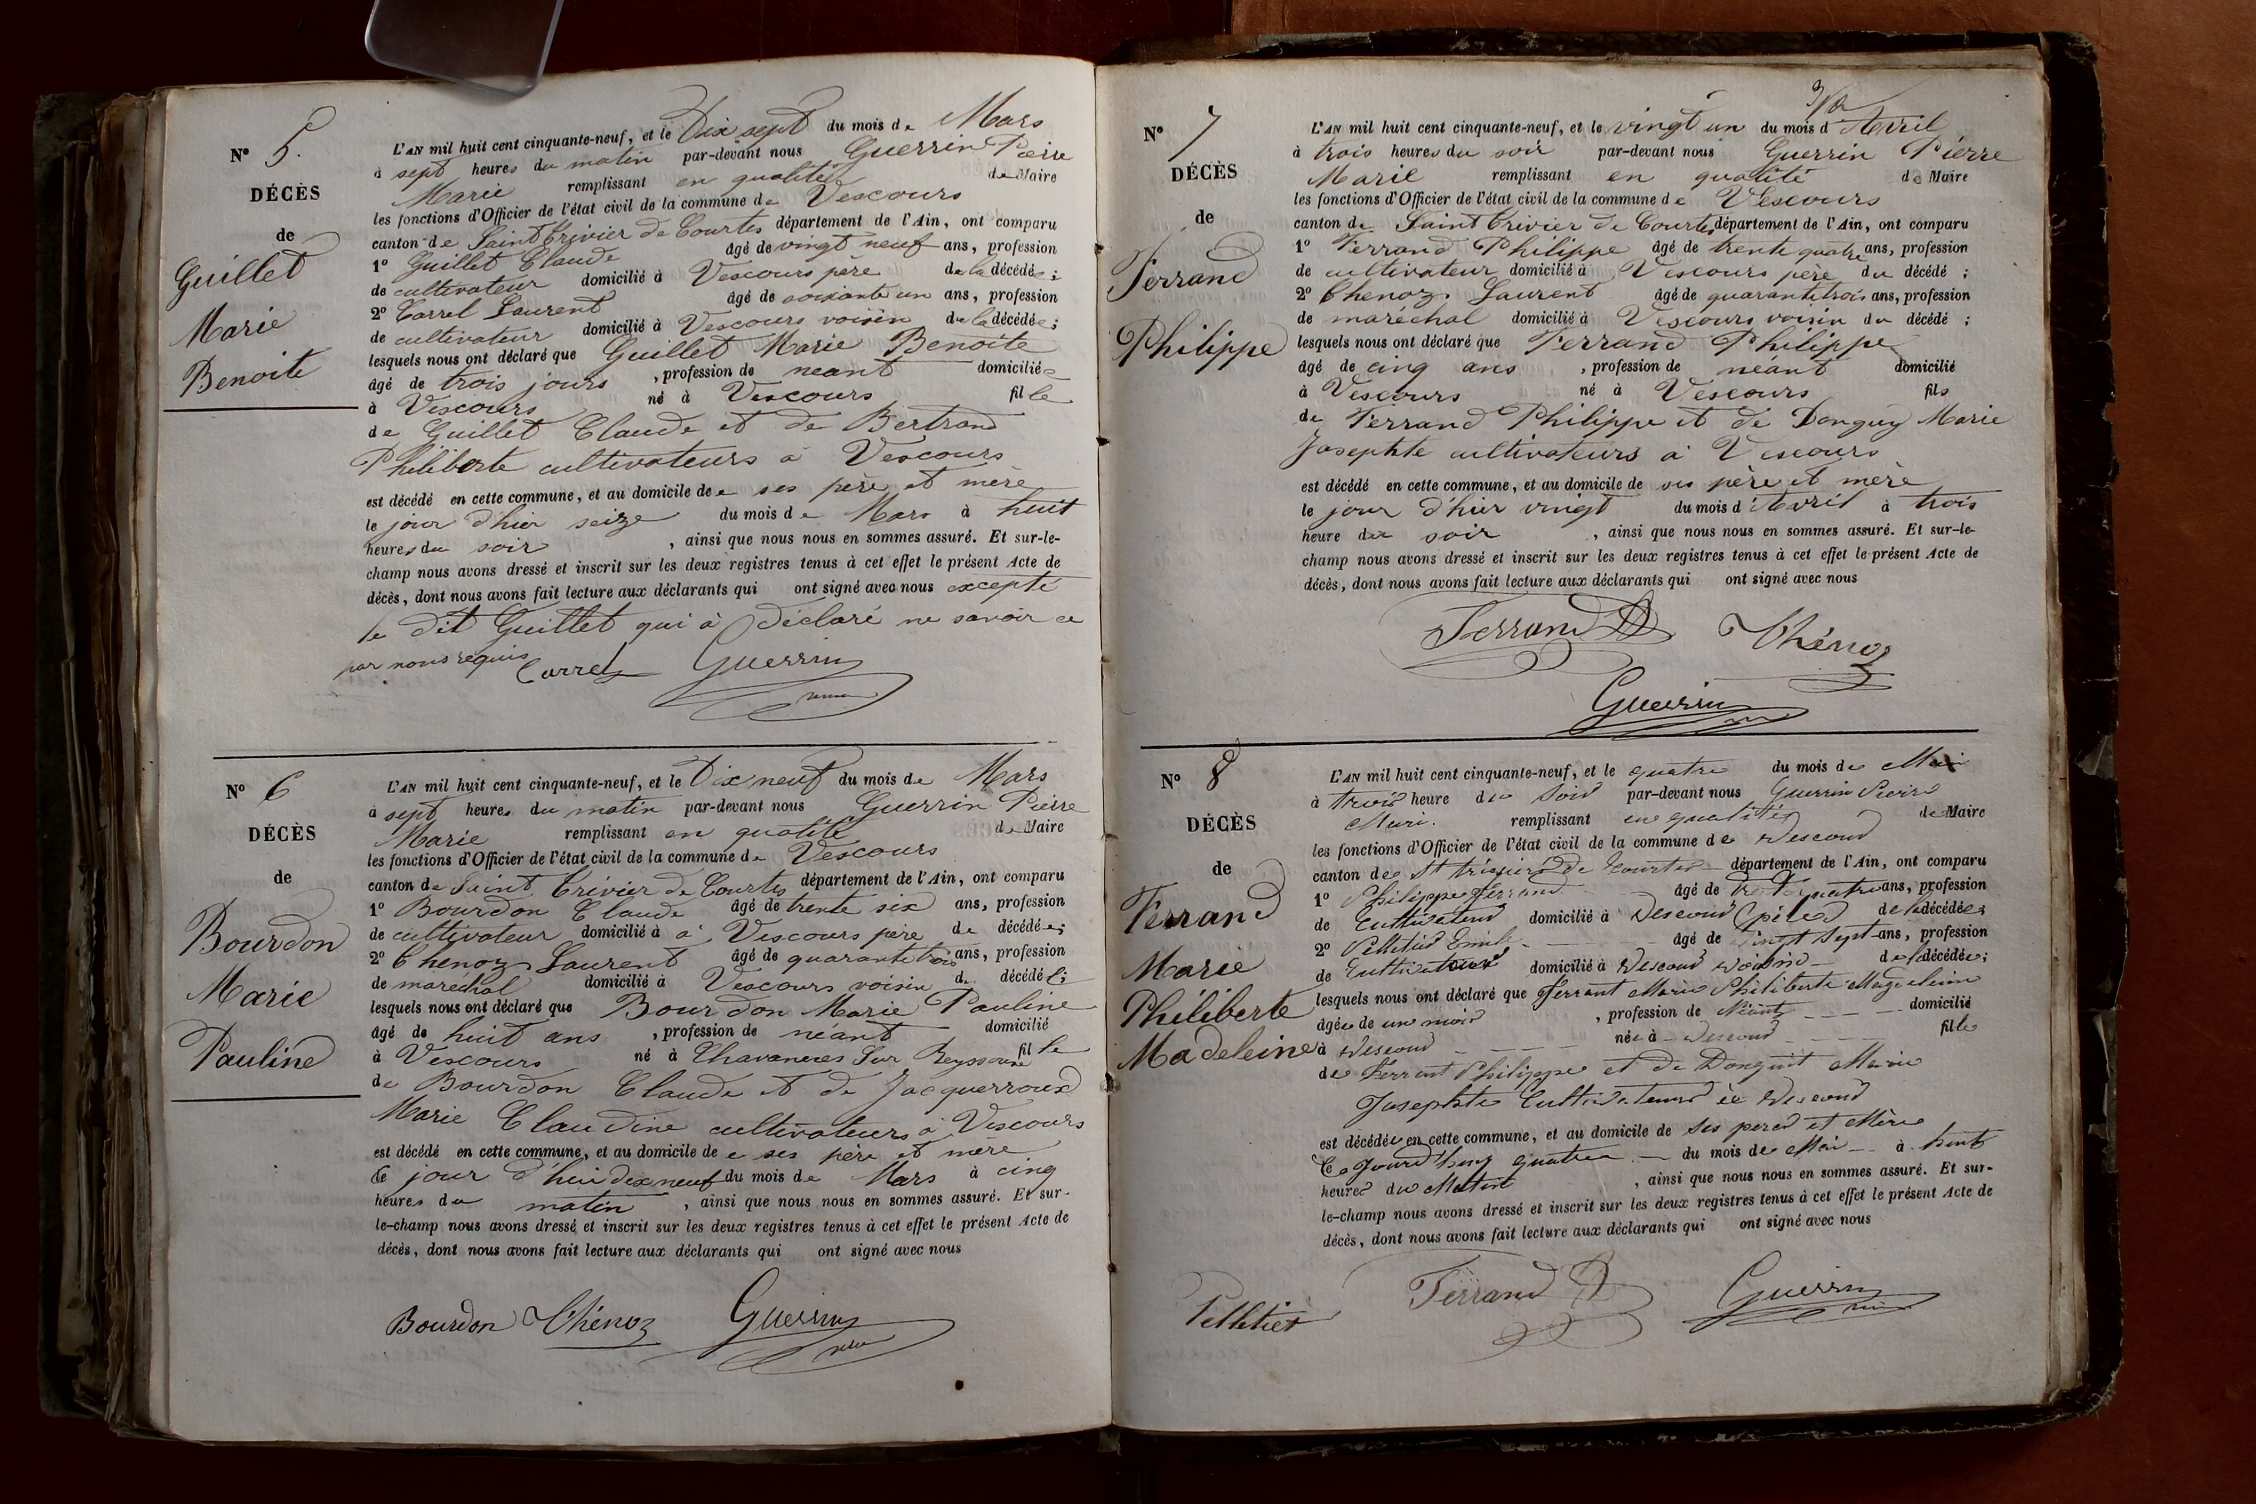 N° 5.
DÉCÈS
de
Guillet
Marie
Benoite
L'AN mil huit cent cinquante-neuf, et le Dix sept du mois de Mars
à sept heures du matin par-devant nous Guerrin Pierre
Marie remplissant en qualité de Maire
les fonctions d'Officier de l'état civil de la commune de Vescours
canton de Saint Trivier de Courtes département de l'Ain, ont comparu
1° Guillet Claude âgé de vingt neuf ans, profession
de cultivateur domicilié à Vescours père de la décédée ;
2° Carrel Laurent âgé de soixante un ans, profession
de cultivateur domicilié à Vescours voisin de la décédée ;
lesquels nous ont déclaré que Guillet Marie Benoite
âgé de trois jours , profession de néant domiciliée
à Vescours né à Vescours fille
de Guillet Claude et de Bertrand
Philiberte cultivateurs à Vescours
est décédé en cette commune, et au domicile de ses père et mère
le jour d'hier seize du mois de Mars à huit
heures du soir , ainsi que nous nous en sommes assuré. Et sur-le-
champ nous avons dressé et inscrit sur les deux registres tenus à cet effet le présent Acte de
décès, dont nous avons fait lecture aux déclarants qui ont signé avec nous excepté
le dit Guillet qui a déclaré ne savoir ce
par nous requis
Carrel Guerrin
N° 6
DÉCÈS
de
Bourdon
Marie
Pauline
L'AN mil huit cent cinquante-neuf, et le Dix neuf du mois de Mars
à sept heures du matin par-devant nous Guerrin Pierre
Marie remplissant en qualité de Maire
les fonctions d'Officier de l'état civil de la commune de Vescours
canton de Saint Trivier de Courtes département de l'Ain, ont comparu
1° Bourdon Claude âgé de trente six ans, profession
de cultivateur domicilié à à Vescours père de décédée ;
2° Chenoz Laurent âgé de quarante trois ans, profession
de maréchal domicilié à Vescours voisin d décédé ;
lesquels nous ont déclaré que Bourdon Marie Pauline
âgé de huit ans , profession de néant domicilié
à Vescours né à Chavannes Sur Reyssouze fille
de Bourdon Claude et de Jacquerroux
Marie Claudine cultivateurs à Vescours
est décédé en cette commune, et au domicile de ses père et mère
le jour d'hui dix neuf du mois de Mars à cinq
heures du matin , ainsi que nous nous en sommes assuré. Et sur-
le-champ nous avons dressé et inscrit sur les deux registres tenus à cet effet le présent Acte de
décès, dont nous avons fait lecture aux déclarants qui ont signé avec nous
Bourdon Chénoz Guerrin
N° 7
DÉCÈS
de
Ferrand
Philippe
L'AN mil huit cent cinquante-neuf, et le vingt un du mois d'Avril
à trois heures du soir par-devant nous Guerrin Pierre
Marie remplissant en qualité de Maire
les fonctions d'Officier de l'état civil de la commune de Vescours
canton de Saint Trivier de Courtes département de l'Ain, ont comparu
1° Ferrand Philippe âgé de trente quatre ans, profession
de cultivateur domicilié à Vescours père du décédé ;
2° Chenoz Laurent âgé de quarante trois ans, profession
de maréchal domicilié à Vescours voisin du décédé ;
lesquels nous ont déclaré que Ferrand Philippe
âgé de cinq ans , profession de néant domicilié
à Vescours né à Vescours fils
de Ferrand Philippe et de Donguy Marie
Josephte cultivateurs à Vescours
est décédé en cette commune, et au domicile de ses père et mère
le jour d'hier vingt du mois d'Avril à trois
heure du soir , ainsi que nous nous en sommes assuré. Et sur-le-
champ nous avons dressé et inscrit sur les deux registres tenus à cet effet le présent Acte de
décès, dont nous avons fait lecture aux déclarants qui ont signé avec nous
Ferrand Chénoz
Guerrin
N° 8
DÉCÈS
de
Ferrand
Marie
Philiberte
Madeleine
L'AN mil huit cent cinquante-neuf, et le quatre du mois de Mai
à trois heure du Soir par-devant nous Guerrin Pierre
Marie remplissant en qualité de Maire
les fonctions d'Officier de l'état civil de la commune de Vescour
canton de St trivier de Courtes département de l'Ain, ont comparu
1° Philippe Ferrand âgé de trente quatre ans, profession
de Cultivateur domicilié à Vescour père de la décédée ;
2° Pelletier Emile âgé de vingt sept ans, profession
de Cultivateur domicilié à Vescour voisin de la décédée ;
lesquels nous ont déclaré que Ferrant Marie Philiberte Magdeleine
âgée de un mois , profession de Néant domicilié
à Vescour née à Vescour fille
de Ferrant Philippe et de Donguit Marie
Josephte Cultivateurs à Vescour
est décédée en cette commune, et au domicile de ses pere et Mère
Ce Jourd'huy quatre du mois de Mai à huit
heures du Matin , ainsi que nous nous en sommes assuré. Et sur-
le-champ nous avons dressé et inscrit sur les deux registres tenus à cet effet le présent Acte de
décès, dont nous avons fait lecture aux déclarants qui ont signé avec nous
Pelletier Ferrand Guerrin